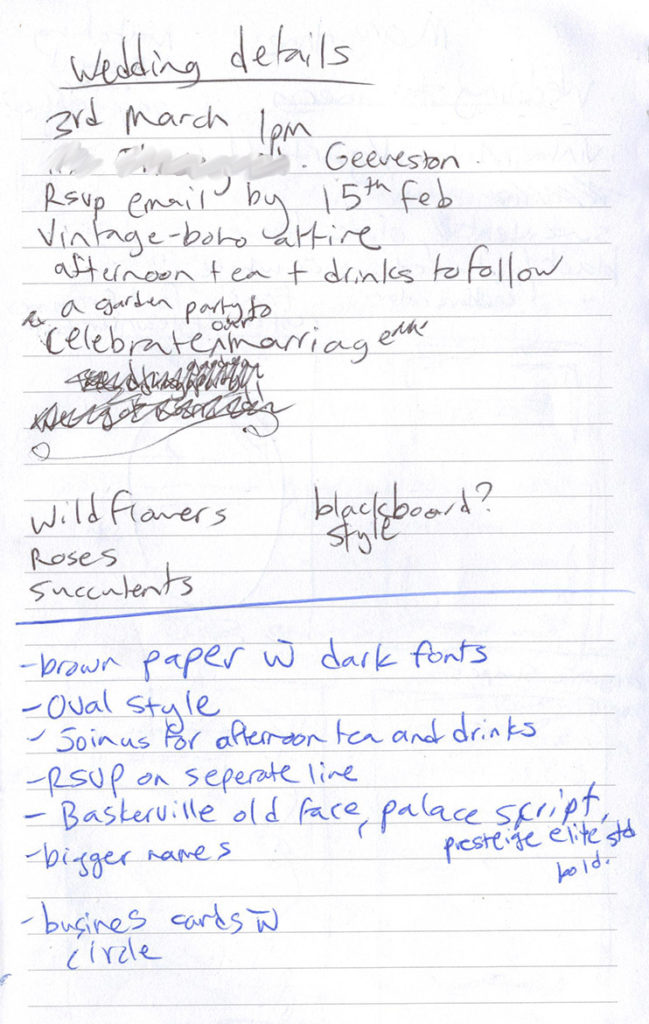 Wedding details
3rd March 1pm
Geeveston
Rsvp email by 15th Feb
Vintage-boho attire
afternoon tea + drinks to follow
a garden party to
celebrate our marriage
wildflowers
blackboard?
style
Roses
succulents
-brown paper w̄ dark fonts
- Oval style
- Join us for afternoon tea and drinks
-RSVP on seperate line
- Baskerville old face, palace script,
presteige elite std
bold.
-bigger names
-busines cards w̄
circle